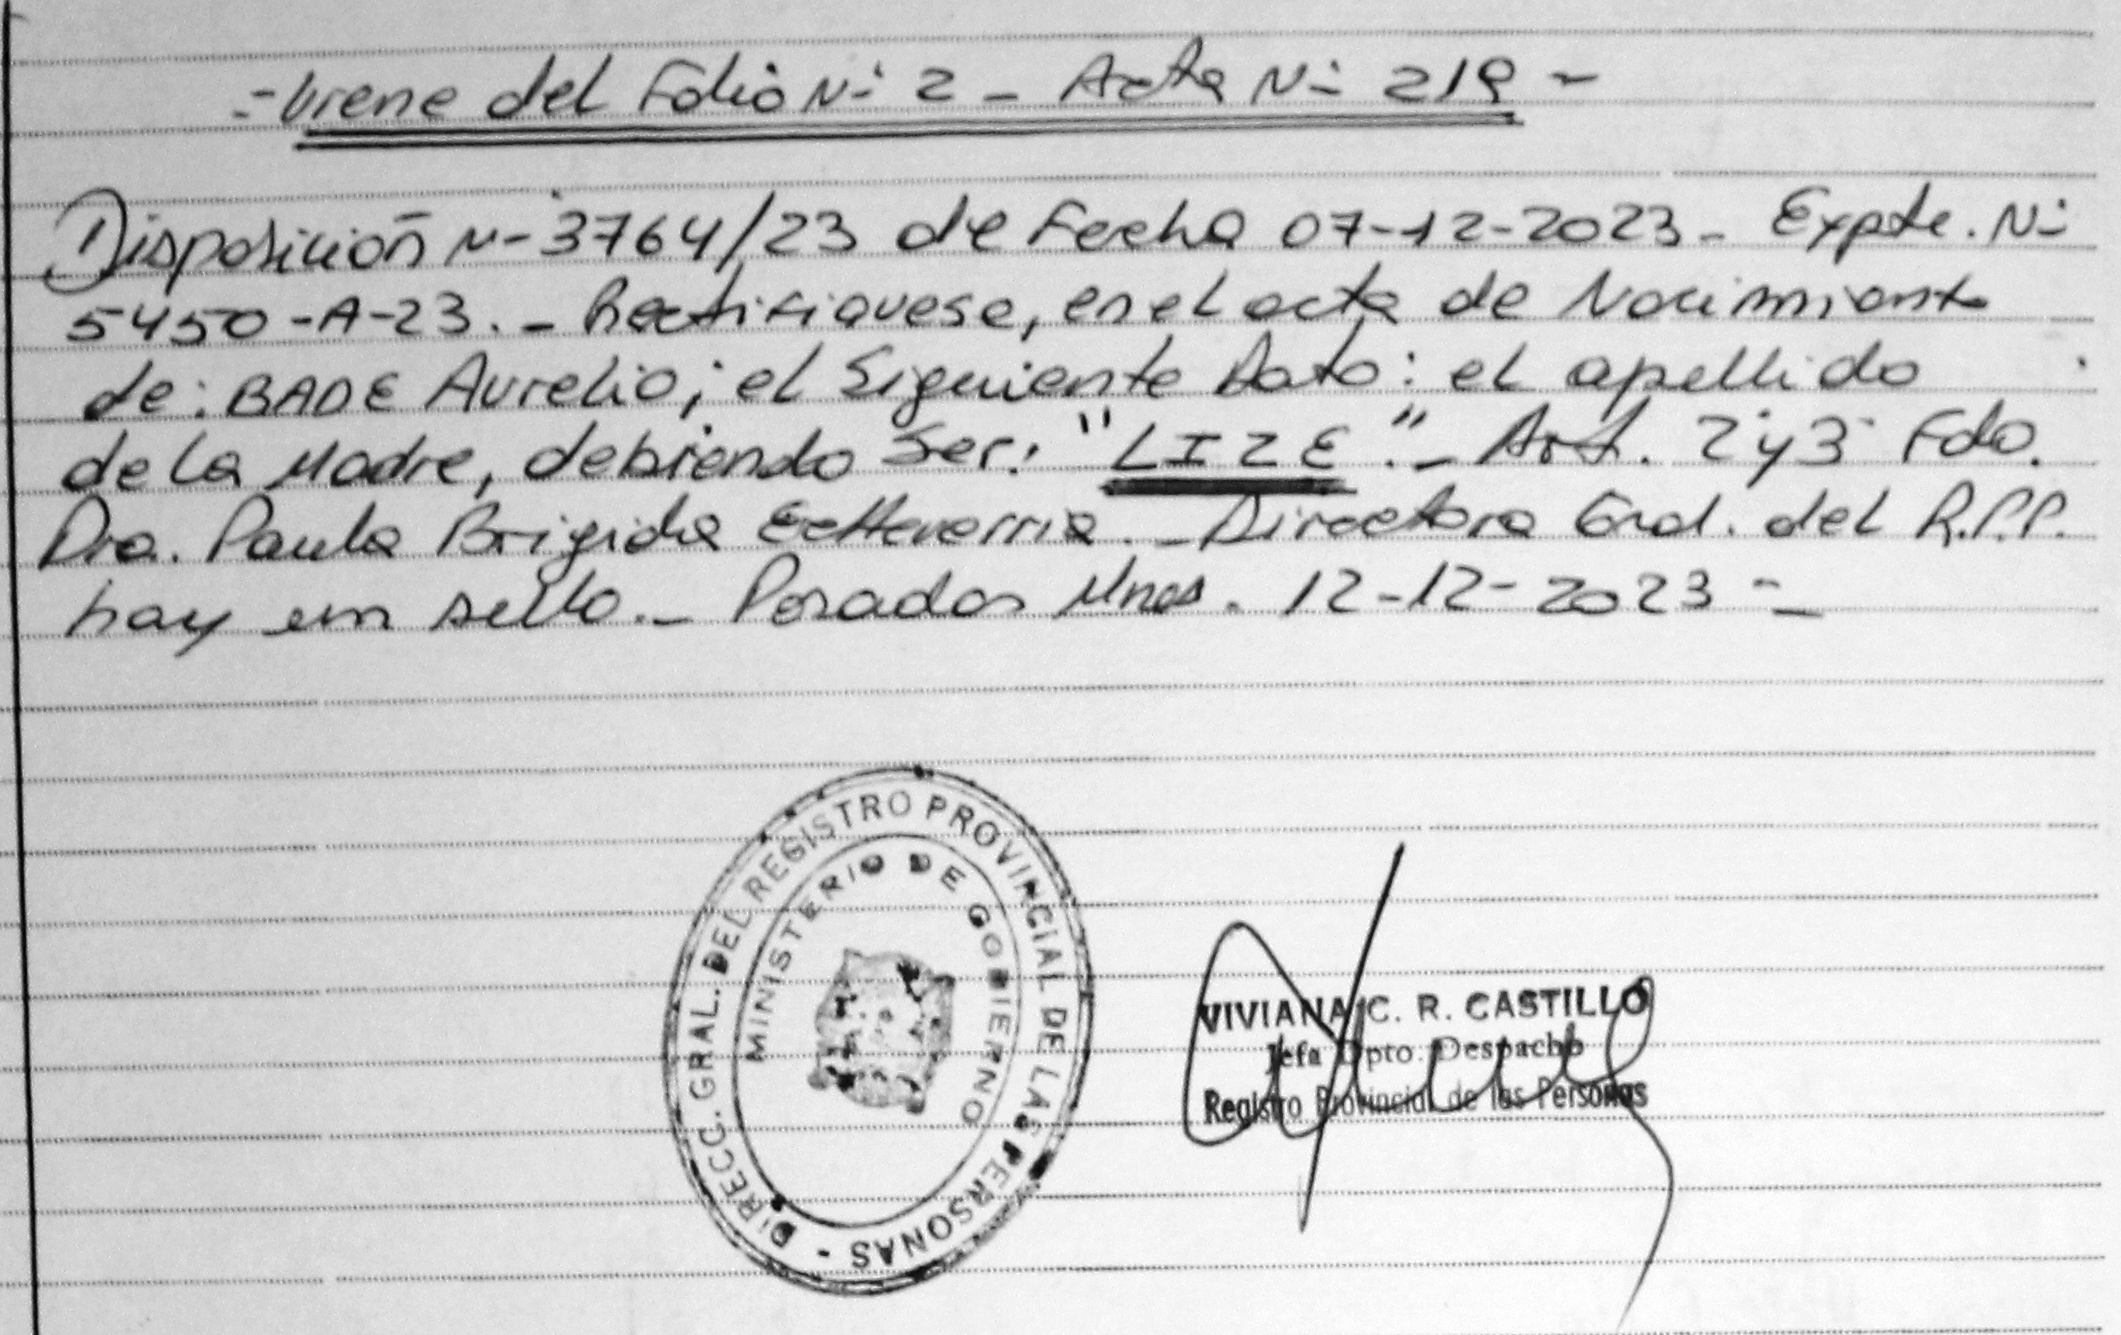 -Viene del Folio N- 2 - Acta N- 219 -
Disposición N- 3764/23 de Fecha 07-12-2023 - Expte. N-
5450-A-23. - Rectifiquese, en el acta de Nacimiento
de: BADE Aurelio; el Siguiente Dato: el apellido
de la Madre, debiendo Ser: "LIZE". - Art. 2 y 3 Fdo.
Dra. Paula Brigida Etcheverria. - Directora Gral. del R.P.P.
hay un sello. - Posadas Mnes. 12-12-2023 - -
DIRECC. GRAL. DEL REGISTRO PROVINCIAL DE LAS PERSONAS -
MINISTERIO DE GOBIERNO
VIVIANA C. R. CASTILLO
Jefa Dpto. Despacho
Registro Provincial de las Personas